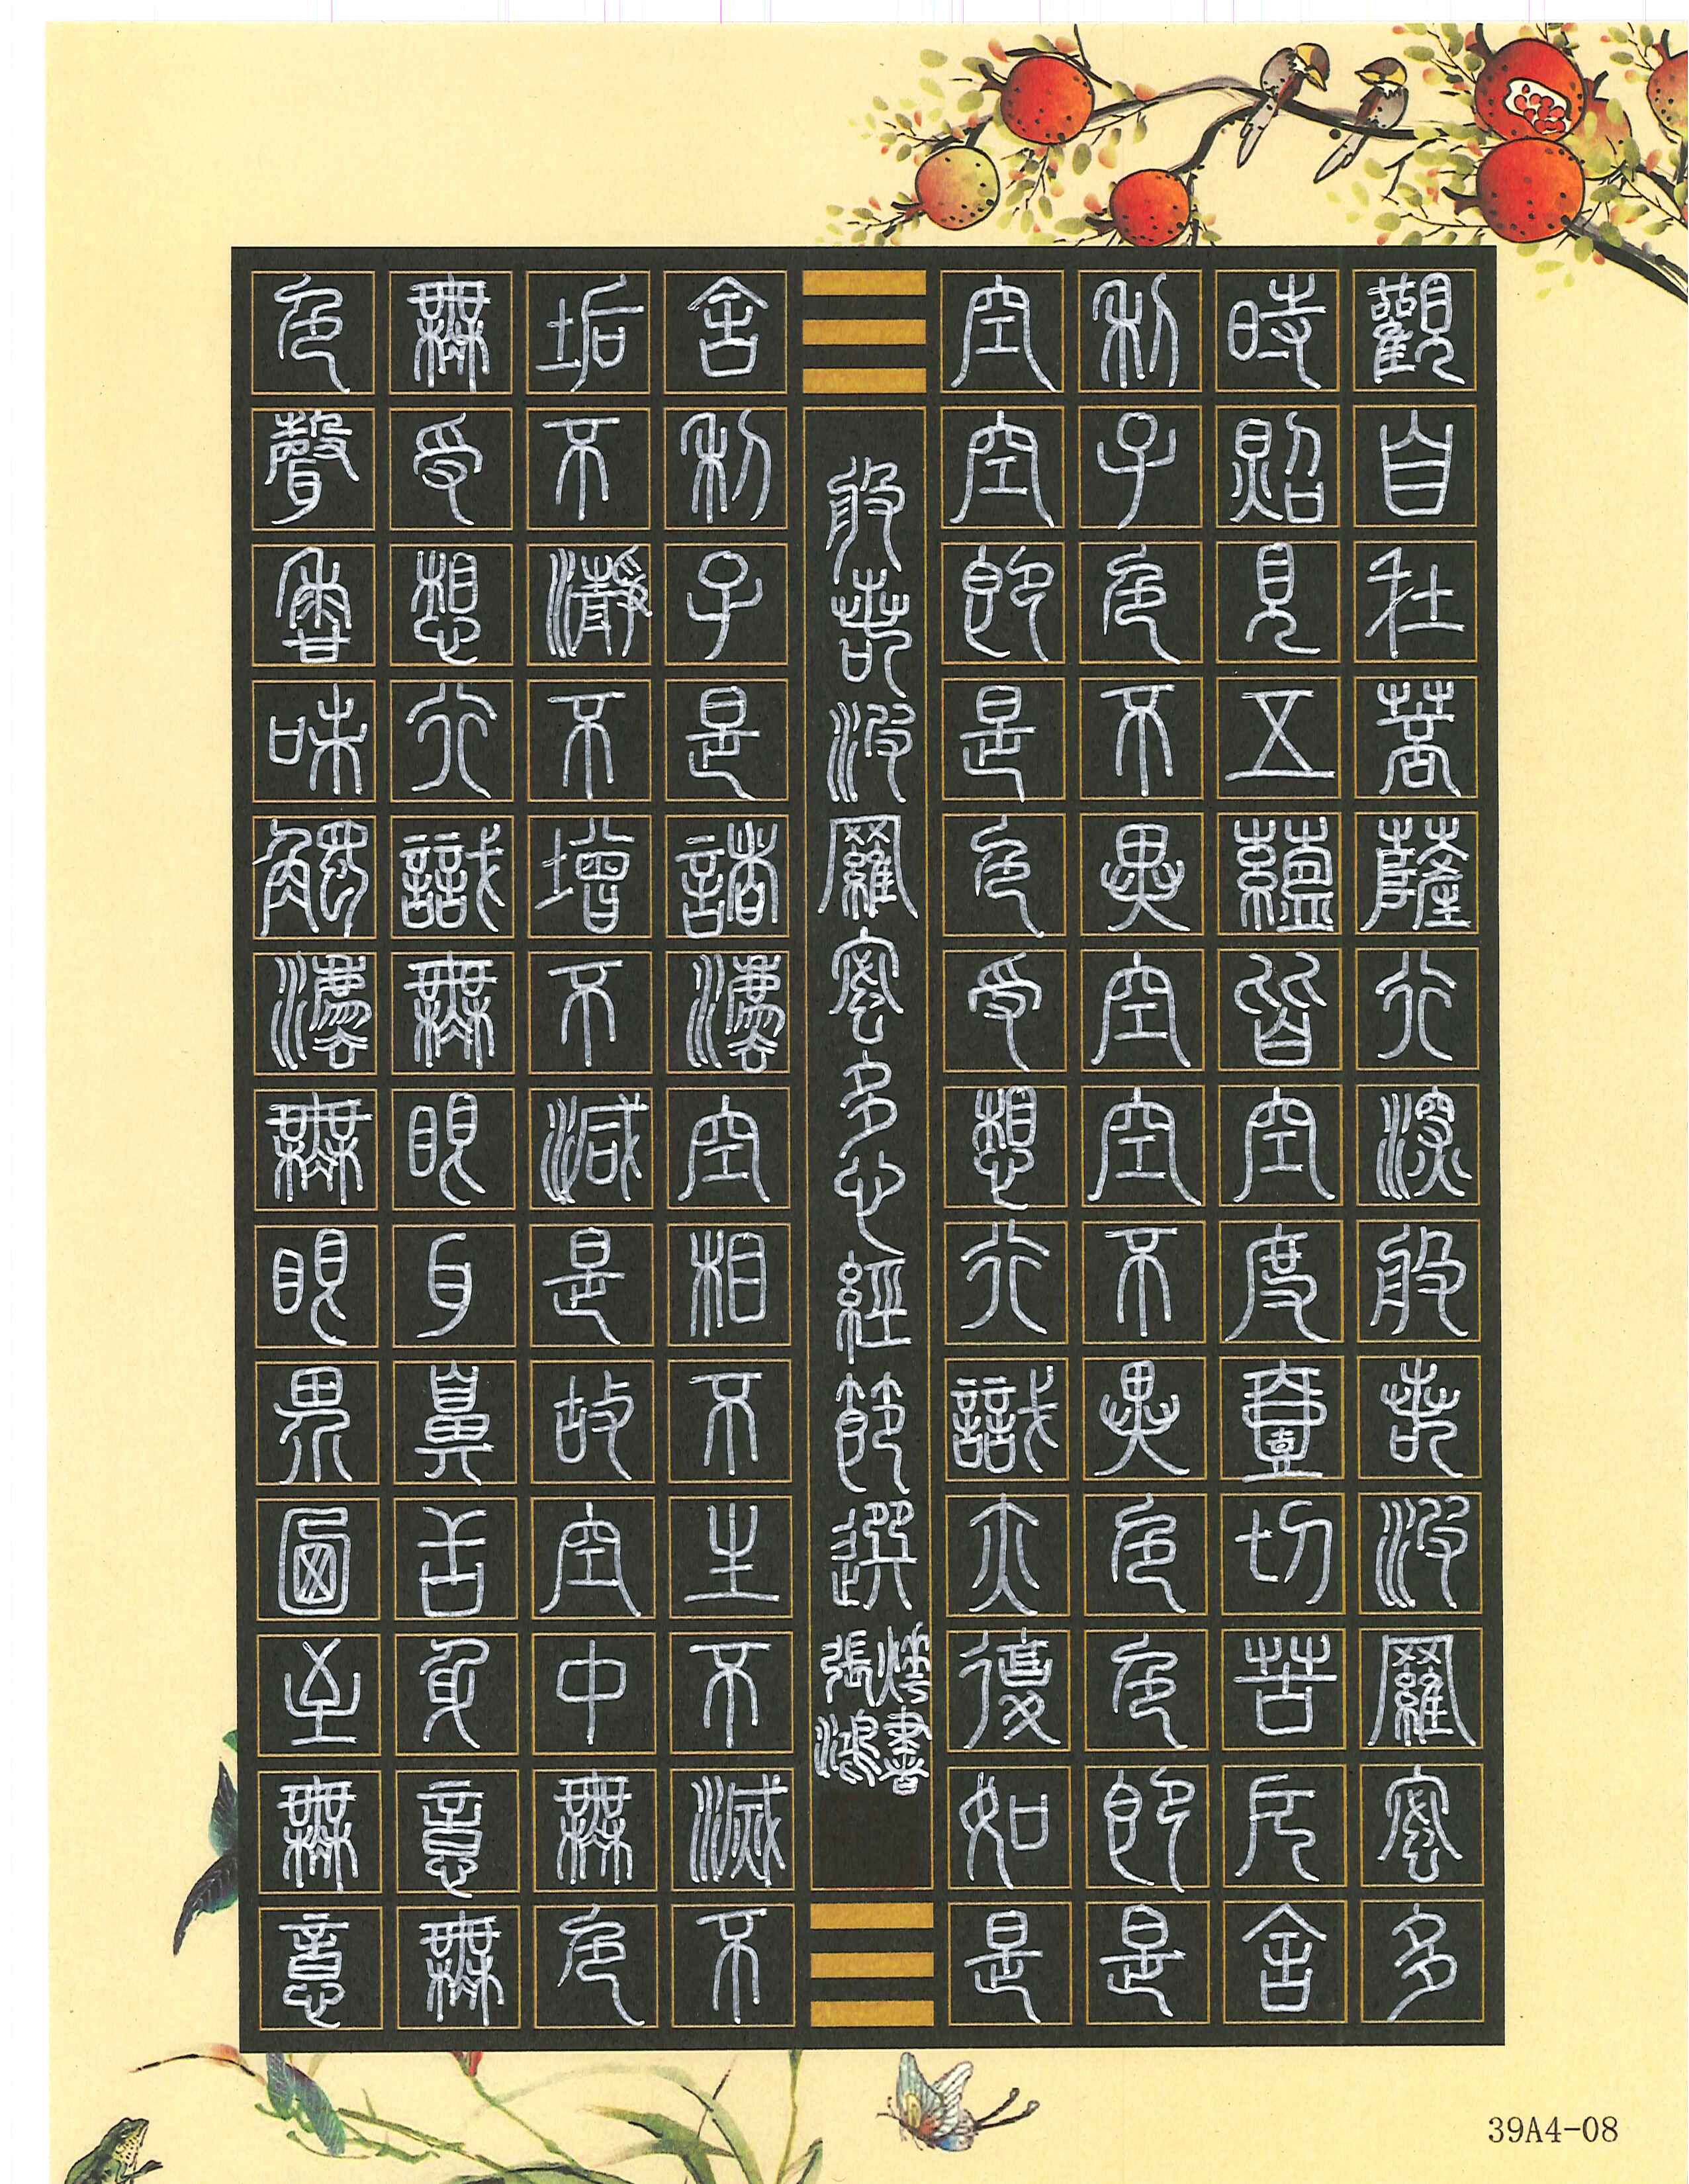 觀自在菩薩行深般若波羅密多
時照見五蘊皆空度壹切苦厄舍
利子色不異空空不異色色即是
空空即是色受想行識亦復如是
般若波羅密多心經節選
張鴻燁書
舍利子是諸法空相不生不滅不
垢不淨不增不減是故空中無色
無受想行識無眼耳鼻舌身意無
色聲香味觸法無眼界乃至無意
39A4-08